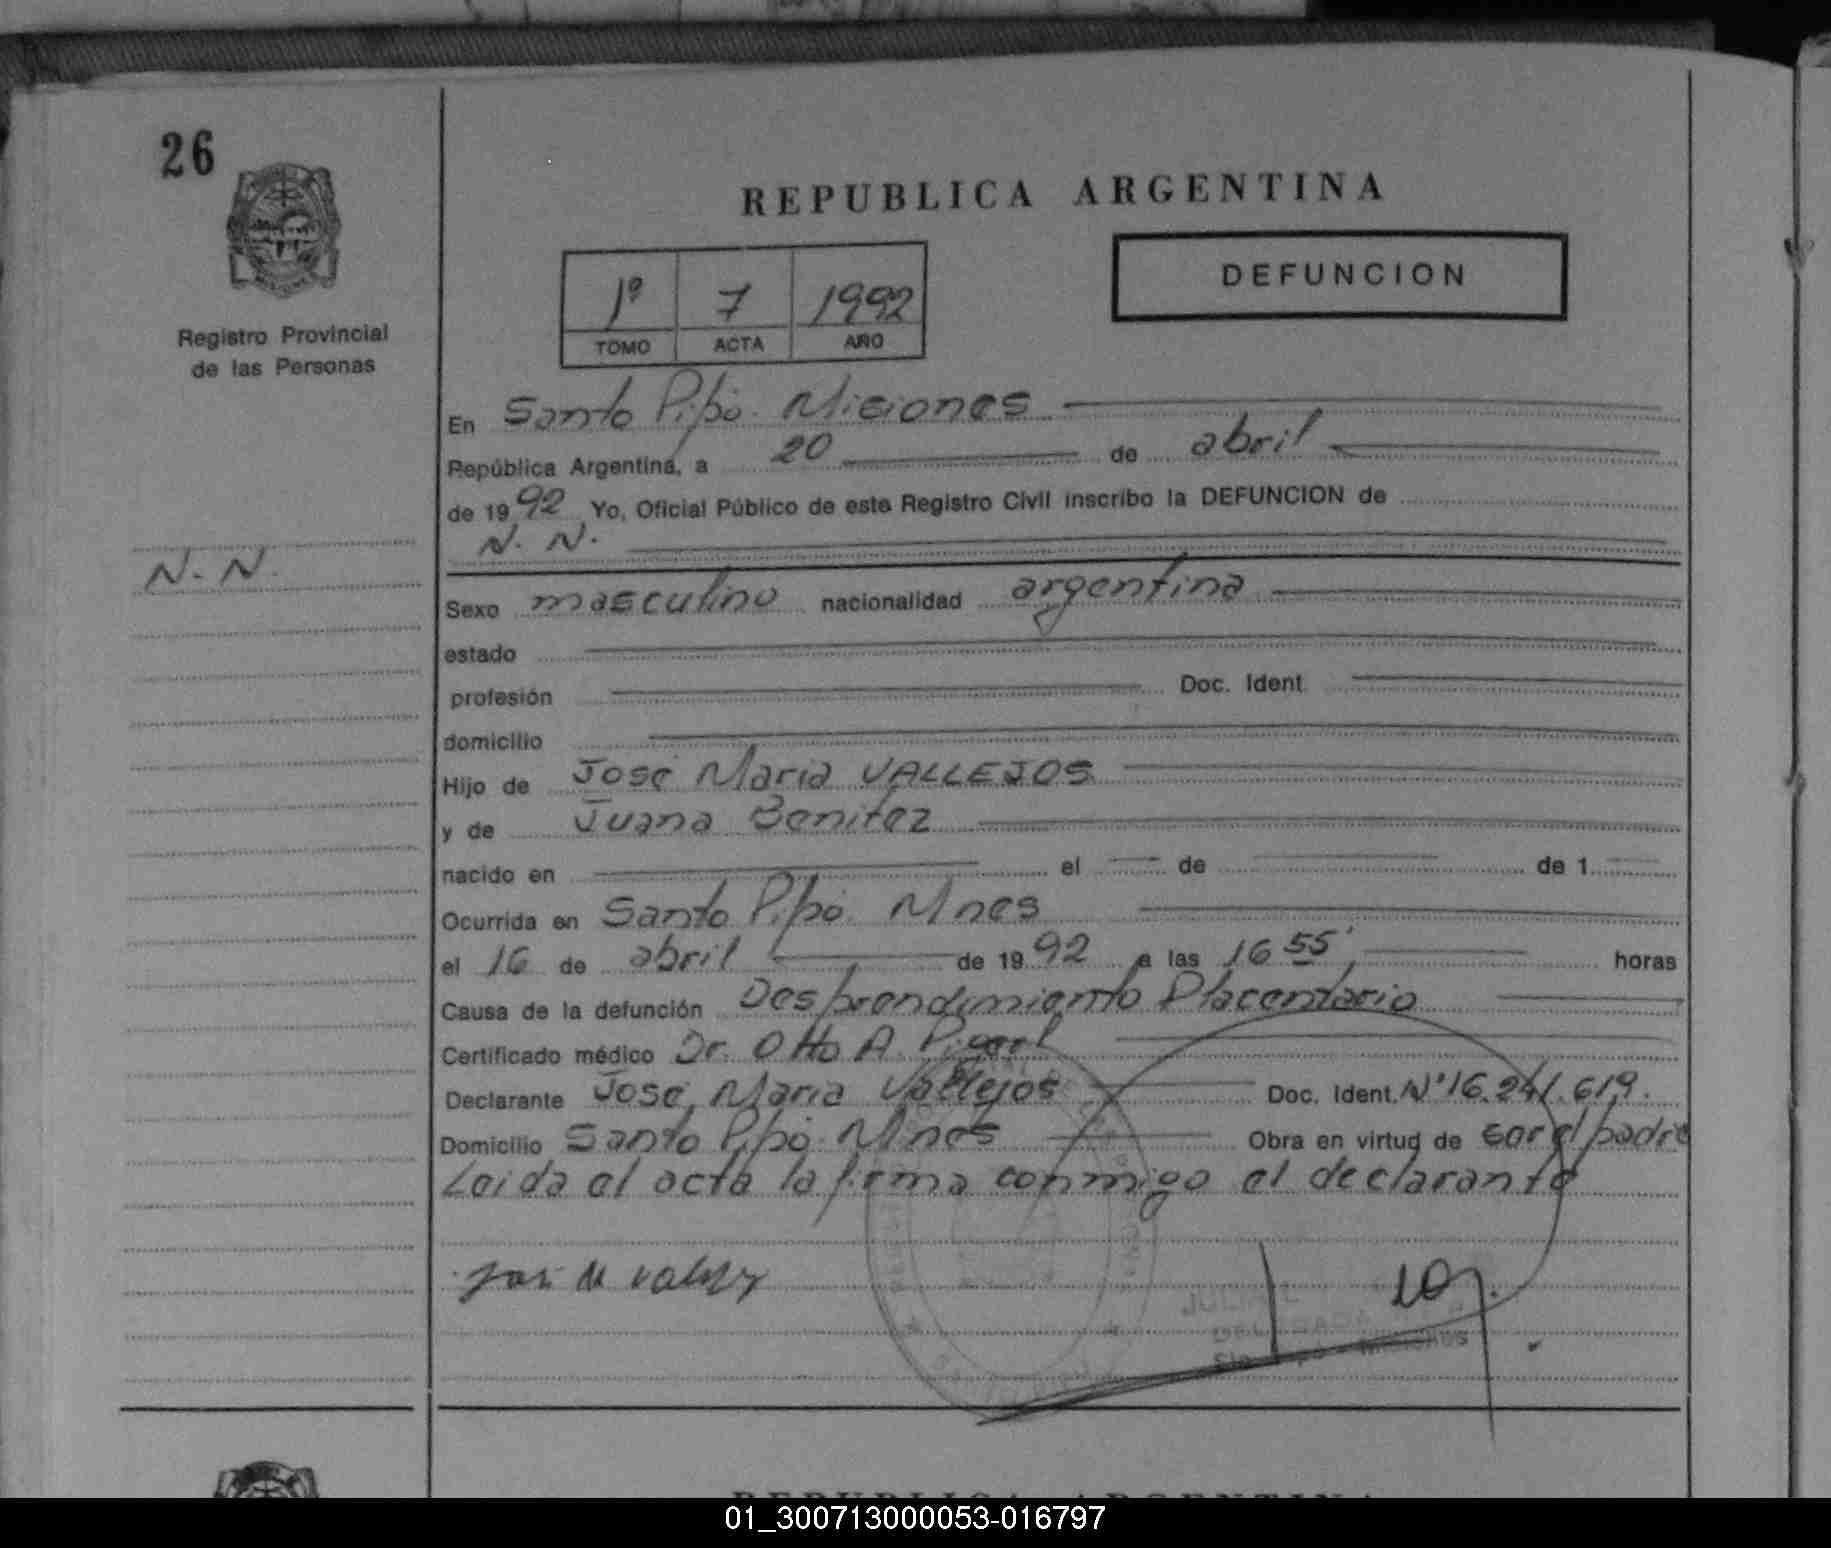 26
REPUBLICA ARGENTINA
DEFUNCION
1º 7 1992
TOMO ACTA AÑO
Registro Provincial
de las Personas
En Santo Pipó. Misiones
República Argentina, a 20 de abril
de 1992 Yo, Oficial Público de este Registro Civil inscribo la DEFUNCION de
N. N.
N. N.
Sexo masculino nacionalidad argentina
estado
profesión Doc. Ident.
domicilio
Hijo de José Maria VALLEJOS
y de Juana Benitez
nacido en el de de 1
Ocurrida en Santo Pipó. Mnes
el 16 de abril de 1992 a las 16 55' horas
Causa de la defunción Desprendimiento Placentario
Certificado médico Dr. Otto A.
Declarante José Maria Vallejos Doc. Ident. Nº 16.241.619.
Domicilio Santo Pipó. Mnes Obra en virtud de ser el padre
Leida el acta la firma conmigo el declarante
REPUBLICA ARGENTINA
01_300713000053-016797